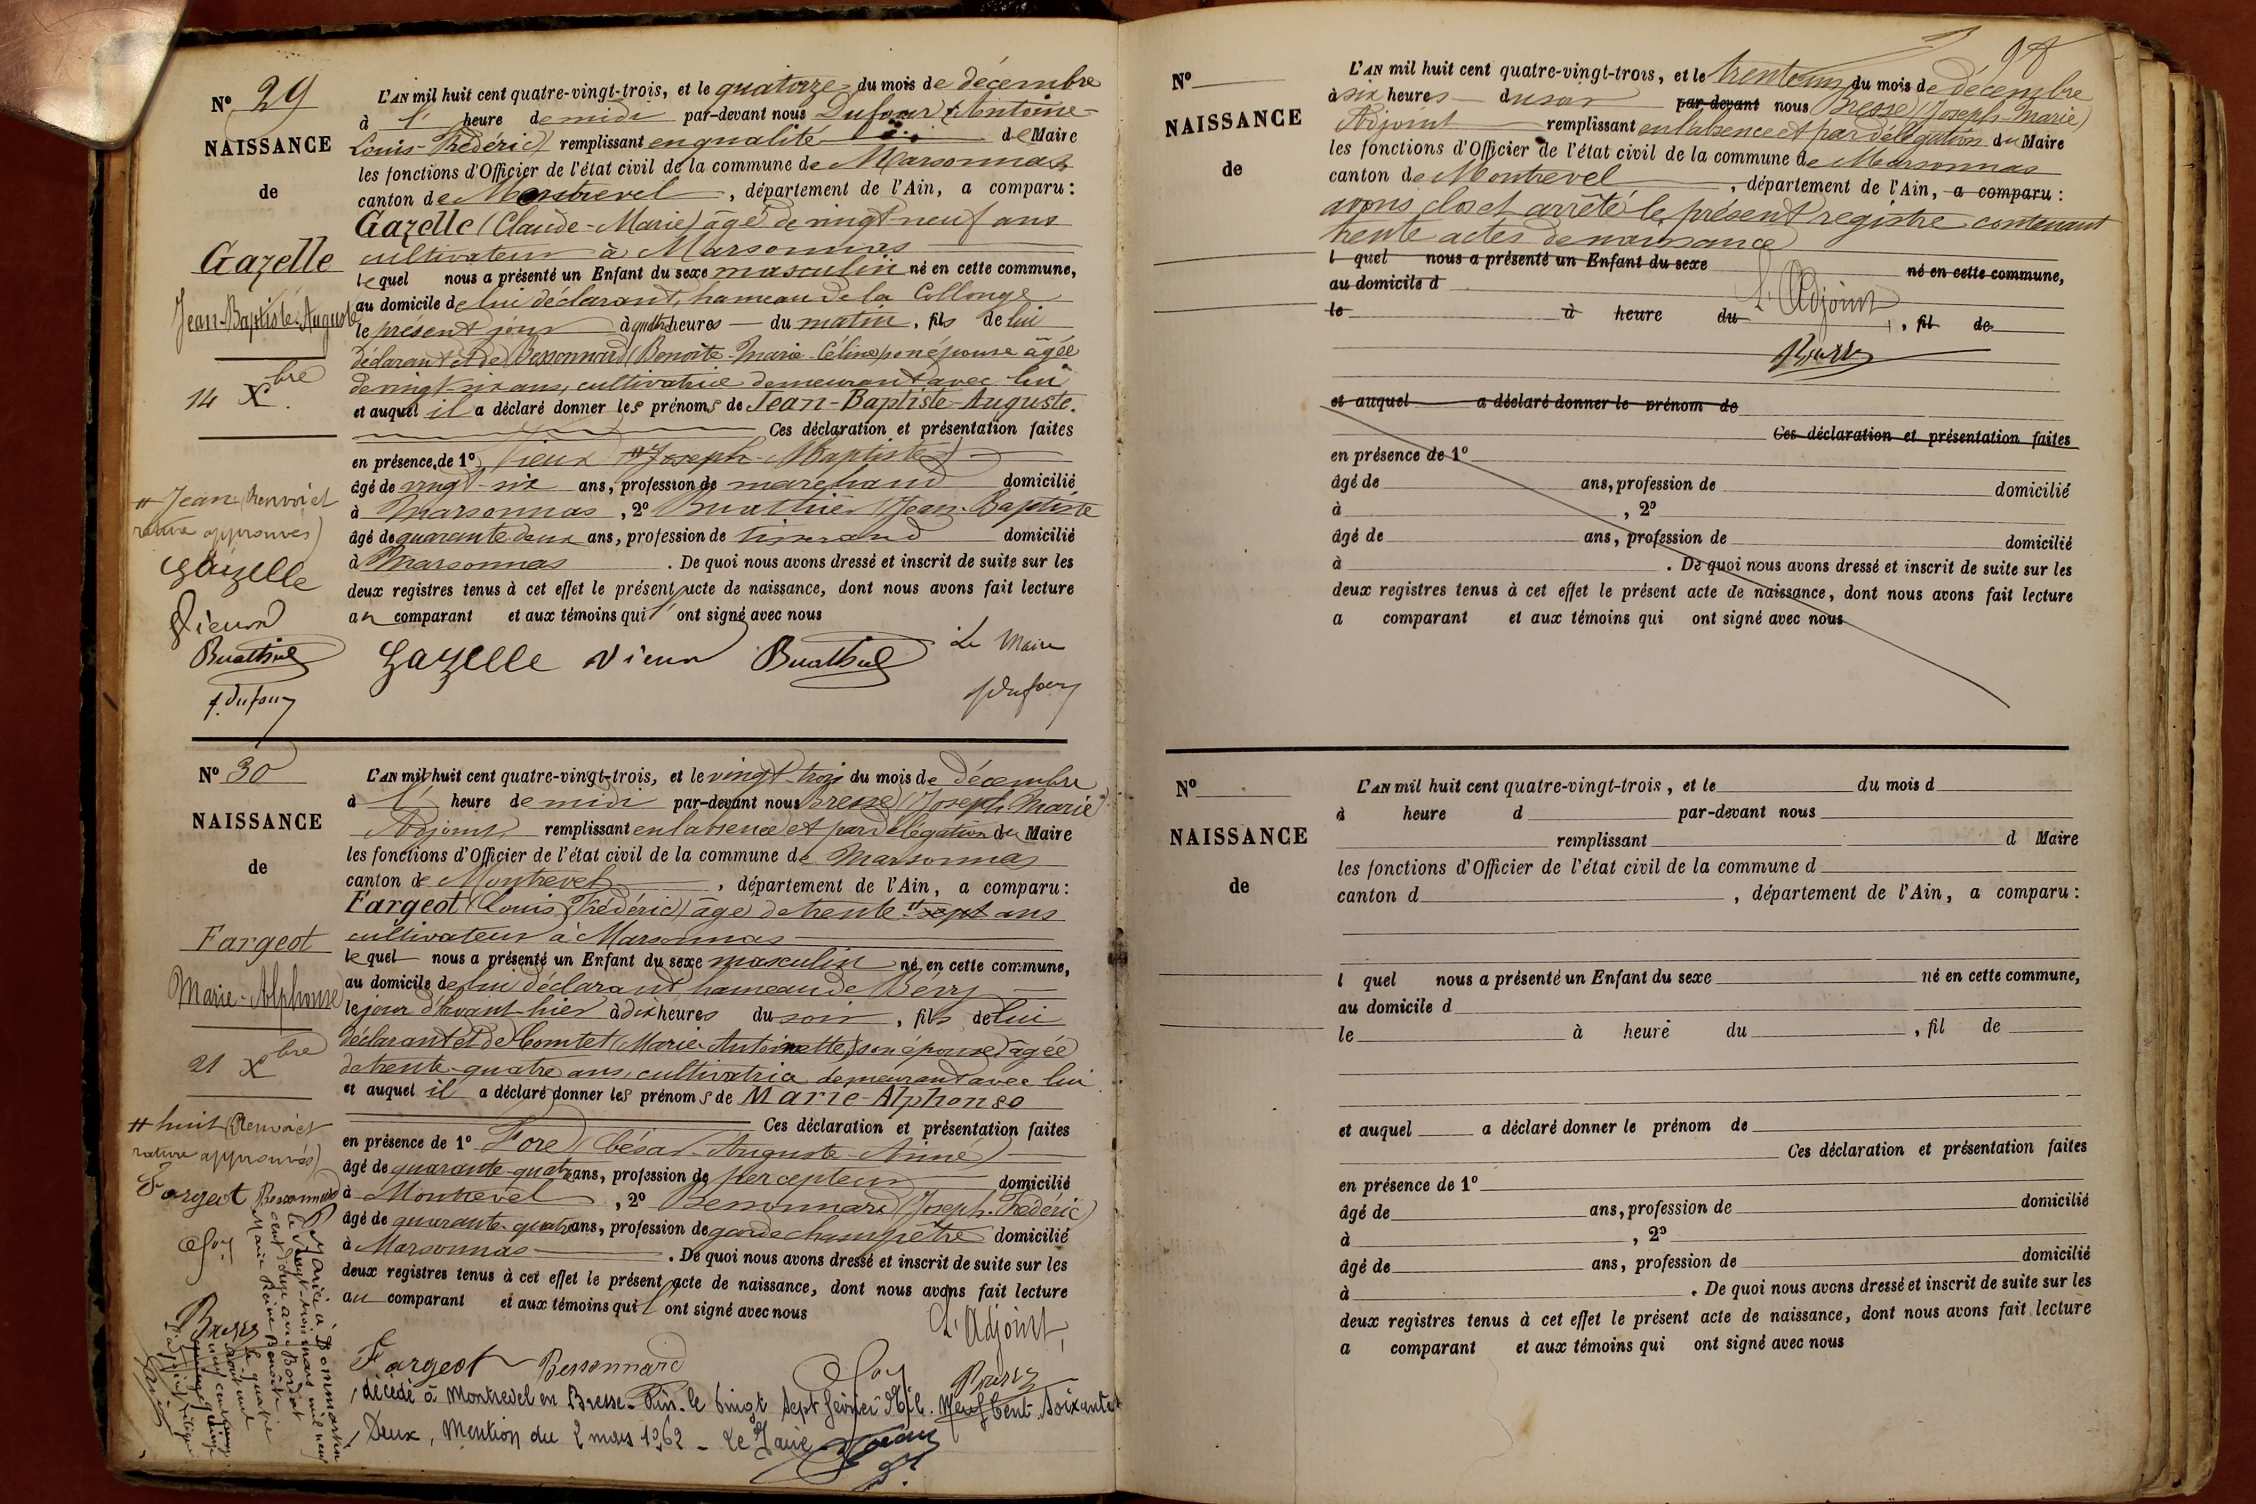 N° 29
NAISSANCE
de
Gazelle
Jean-Baptiste-Auguste
14 Xbre
# Jean (Renvoi et
rature approuvés)
Gazelle
Vieux
Buathier
f. Dufour
L'AN mil huit cent quatre-vingt-trois, et le quatorze du mois de décembre
à l' heure de midi par-devant nous Dufour (Antoine-
Louis-Frédéric) remplissant en qualité de Maire
les fonctions d'Officier de l'état civil de la commune de Marsonnas
canton de Montrevel, département de l'Ain, a comparu :
Gazelle (Claude-Marie) âgé de vingt neuf ans
cultivateur à Marsonnas
lequel nous a présenté un Enfant du sexe masculin né en cette commune,
au domicile de lui déclarant, hameau de la Collonge
le présent jour à quatre heures du matin, fils de lui
déclarant et de Bessonnard (Benoite-Marie-Céline) son épouse âgée
de vingt six ans, cultivatrice demeurant avec lui
et auquel il a déclaré donner les prénoms de Jean-Baptiste-Auguste.
Ces déclaration et présentation faites
en présence de 1° Vieux # Joseph-Baptiste)
âgé de vingt-six ans, profession de marchand domicilié
à Marsonnas, 2° Buathier (Jean-Baptiste
âgé de quarante deux ans, profession de tisserand domicilié
à Marsonnas. De quoi nous avons dressé et inscrit de suite sur les
deux registres tenus à cet effet le présent acte de naissance, dont nous avons fait lecture
au comparant et aux témoins qui ont signé avec nous
Gazelle Vieux Buathier Le Maire
f Dufour
N° 30
NAISSANCE
de
Fargeot
Marie-Alphonse
21 Xbre
# huit (Renvoi et
rature approuvés)
Fargeot Bessonnard
Foy
Bresse
Marié à Dommartin
le vingt-trois mars mil neuf
cent douze avec Bordat
Marie Reine Benoite
L'AN mil huit cent quatre-vingt-trois, et le vingt-trois du mois de décembre
à l' heure de midi par-devant nous Bresse (Joseph Marie)
Adjoint remplissant en l'absence et par délégation du Maire
les fonctions d'Officier de l'état civil de la commune de Marsonnas
canton de Montrevel, département de l'Ain, a comparu :
Fargeot (Louis Frédéric) âgé de trente # sept ans
cultivateur à Marsonnas
lequel nous a présenté un Enfant du sexe masculin né en cette commune,
au domicile de lui déclarant, hameau de Berry
le jour d'avant-hier à dix heures du soir, fils de lui
déclarant et de Comtet (Marie-Antoinette) son épouse âgée
de trente-quatre ans, cultivatrice demeurant avec lui
et auquel il a déclaré donner les prénoms de Marie-Alphonse
Ces déclaration et présentation faites
en présence de 1° (César-Auguste-Aimé)
âgé de quarante-quatre ans, profession de percepteur domicilié
à Montrevel, 2° Bessonnard (Joseph-Frédéric)
âgé de quarante-quatre ans, profession de garde champêtre domicilié
à Marsonnas. De quoi nous avons dressé et inscrit de suite sur les
deux registres tenus à cet effet le présent acte de naissance, dont nous avons fait lecture
au comparant et aux témoins qui ont signé avec nous
L'Adjoint,
Fargeot Bessonnard Foy Bresse
décédé à Montrevel en Bresse. Ain. le vingt sept février Mil. Neuf Cent. Soixante
Deux, Mention du 2 mars 1962 - Le Maire
N°
NAISSANCE
de
L'AN mil huit cent quatre-vingt-trois, et le trente un du mois de décembre
à six heures du soir par-devant nous Bresse (Joseph-Marie)
Adjoint remplissant en l'absence et par délégation du Maire
les fonctions d'Officier de l'état civil de la commune de Marsonnas
canton de Montrevel, département de l'Ain, a comparu :
avons clos et arrêté le présent registre contenant
trente actes de naissance
l quel nous a présenté un Enfant du sexe né en cette commune,
au domicile d
L'Adjoint
le à heure du , fil de
Bresse
et auquel a déclaré donner le prénom de
Ces déclaration et présentation faites
en présence de 1°
âgé de ans, profession de domicilié
à , 2°
âgé de ans, profession de domicilié
à . De quoi nous avons dressé et inscrit de suite sur les
deux registres tenus à cet effet le présent acte de naissance, dont nous avons fait lecture
a comparant et aux témoins qui ont signé avec nous
N°
NAISSANCE
de
L'AN mil huit cent quatre-vingt-trois, et le du mois d
à heure d par-devant nous
remplissant d Maire
les fonctions d'Officier de l'état civil de la commune d
canton d , département de l'Ain, a comparu :
l quel nous a présenté un Enfant du sexe né en cette commune,
au domicile d
le à heure du , fil de
et auquel a déclaré donner le prénom de
Ces déclaration et présentation faites
en présence de 1°
âgé de ans, profession de domicilié
à , 2°
âgé de ans, profession de domicilié
à . De quoi nous avons dressé et inscrit de suite sur les
deux registres tenus à cet effet le présent acte de naissance, dont nous avons fait lecture
a comparant et aux témoins qui ont signé avec nous